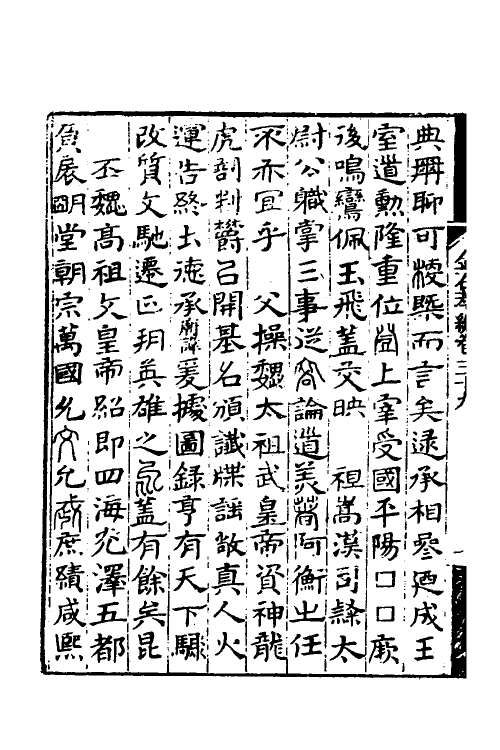 典冊聊可梗槩而言矣逮承相參廼成王
室道勳隆重位登上宰受國平陽□□厥
後鳴鸞佩玉飛蓋交映　祖嵩漢司隸太
尉公職掌三事從容論道美著阿衡之任
不亦宜乎　父操魏太祖武皇帝資神龍
虎剖判欝㠯開基名頒讖牒謡啟真人火
運告終土德承廟諱爰據圖錄享有天下驅
改質文馳遷正朔英雄之氣蓋有餘矣昆
丕魏高祖文皇帝紹即四海光澤五都
負扆明堂朝宗萬國允文允武庶績咸熙
金石萃編卷三十九